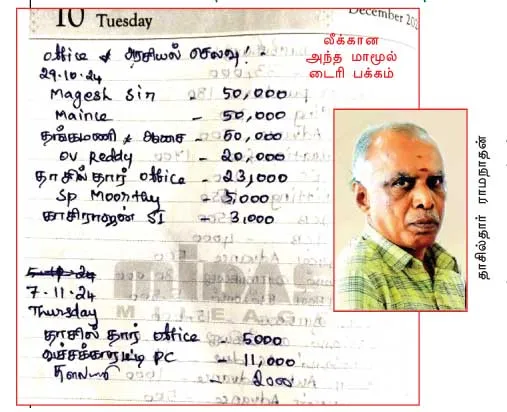 10 Tuesday
December 202
லீக்கான
அந்த மாமூல்
டைரி பக்கம்
office & அரசியல் செலவு! -
29.10.24
Magesh Sir - 50,000
Maince - 50,000
தங்கமணி & ஆசை - 60,000
OV Reddy - 20,000
தாசில்தார் office - 23,000
Sp Moorthy - 5,000
காசிராஜன் SI - 3,000
7.11.24
Thursday
தாசில்தார் office - 5000
PC - 11,000
தாசில்தார் ராமநாதன்